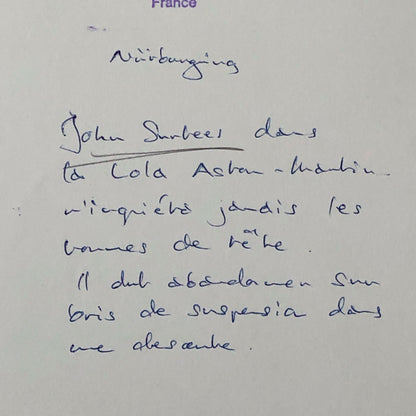 France
Nürburgring
John Surtees dans
la Lola Aston-Martin
n'inquiéta jamais les
hommes de tête.
Il dut abandonner sur
bris de suspension dans
une descente.